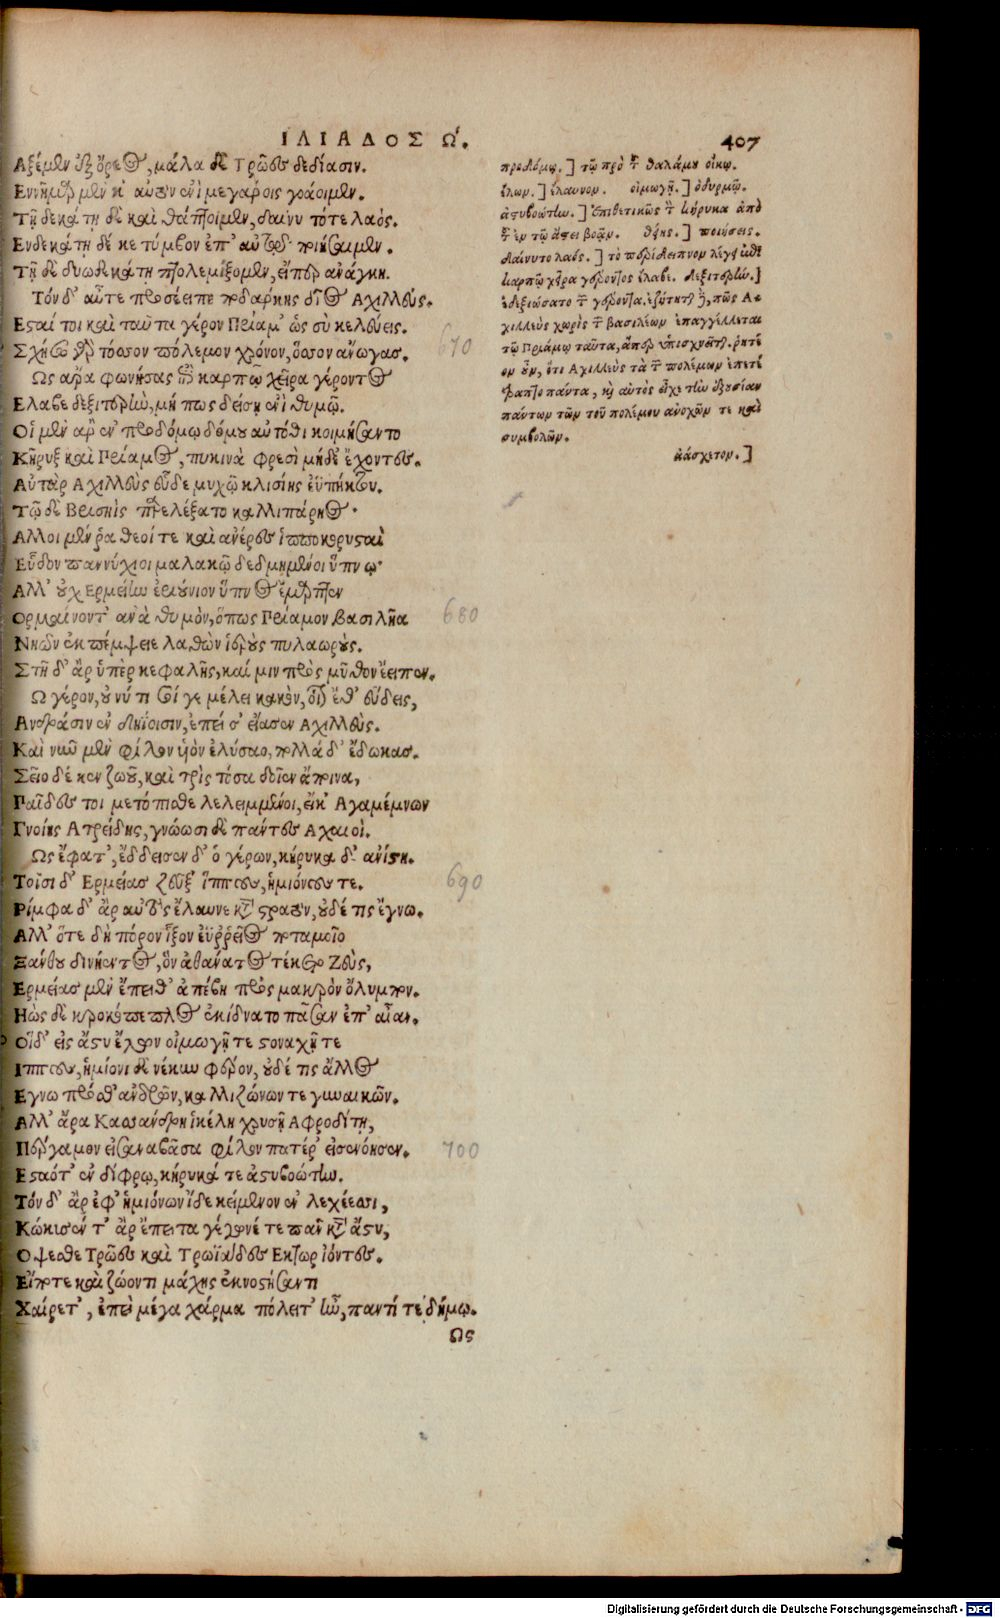 ΙΛΙΑΔΟΣ Ω.
407
Αξέμεν ἐξ ὄρεος, μάλα δὲ Τρῶες δεδίασιν.
Εννῆμαρ μέν κ' αὐτὸν ἐνὶ μεγάροις γοάοιμεν.
Τῇ δεκάτῃ δὲ καὶ θάπτοιμεν, δαίνυτό τε λαός.
Ενδεκάτῃ δέ κε τύμβον ἐπ' αὐτῷ ποιήσαιμεν.
Τῇ δὲ δυωδεκάτῃ πτολεμίξομεν, εἴπερ ἀνάγκη.
Τὸν δ' αὖτε προσέειπε ποδάρκης δῖος Αχιλλεύς.
Εσαί τοι καὶ ταῦτα γέρον Πρίαμ' ὡς σὺ κελεύεις.
Σχήσω γὰρ τόσσον πόλεμον χρόνον, ὅσσον ἄνωγας.
670
Ως ἄρα φωνήσας ἐπὶ καρπῷ χεῖρα γέροντος
Ελαβε δεξιτερὴν, μή πως δείσῃ ἐνὶ θυμῷ.
Οἱ μὲν ἄρ' ἐν προδόμῳ δόμου αὐτόθι κοιμήσαντο
Κῆρυξ καὶ Πρίαμος, πυκινὰ φρεσὶ μήδε' ἔχοντες.
Αὐτὰρ Αχιλλεὺς εὗδε μυχῷ κλισίης ἐϋπήκτου.
Τῷ δὲ Βρισηὶς παρελέξατο καλλιπάρηος.
Αλλοι μέν ῥα θεοί τε καὶ ἀνέρες ἱπποκορυσταὶ
Εὗδον παννύχιοι μαλακῷ δεδμημένοι ὕπνῳ·
Αλλ' οὐχ Ερμείην ἐριούνιον ὕπνος ἔμαρπτεν
Ορμαίνοντ' ἀνὰ θυμὸν, ὅπως Πρίαμον βασιλῆα
680
Νηῶν ἐκπέμψειε λαθὼν ἱεροὺς πυλαωροὺς.
Στῆ δ' ἄρ ὑπὲρ κεφαλῆς, καί μιν πρὸς μῦθον ἔειπεν.
Ω γέρον, οὔ νύ τι σοί γε μέλει κακὸν, οἷον ἔθ' εὕδεις,
Ανδράσιν ἐν δηίοισιν, ἐπεί σ' εἴασεν Αχιλλεύς.
Καὶ νῦν μὲν φίλον υἱὸν ἐλύσαο, πολλὰ δ' ἔδωκας.
Σεῖο δέ κεν ζωοῦ, καὶ τρὶς τόσα δοῖεν ἄποινα,
Παῖδες τοι μετόπισθε λελειμμένοι, εἴ κ' Αγαμέμνων
Γνοίης Ατρείδης, γνώωσι δὲ πάντες Αχαιοί.
Ως ἔφατ', ἔδδεισεν δ' ὁ γέρων, κήρυκα δ' ἀνίστη.
Τοῖσι δ' Ερμείας ζεῦξ' ἵππους, ἡμιόνους τε.
690
Ρίμφα δ' ἄρ αὐτὸς ἔλαυνε κατὰ στρατὸν, οὐδέ τις ἔγνω.
Αλλ' ὅτε δὴ πόρον ἷξον ἐϋῤῥεῖος ποταμοῖο
Ξάνθου δινήεντος, ὃν ἀθάνατος τέκετο Ζεὺς,
Ερμείας μὲν ἔπειθ' ἀπέβη πρὸς μακρὸν ὄλυμπον.
Ηὼς δὲ κροκόπεπλος ἐκίδνατο πᾶσαν ἐπ' αἶαν.
Οἵ δ' εἰς ἄστυ ἔλων οἰμωγῇ τε στοναχῇ τε
Ιππους, ἡμίονοι δὲ νέκυν φέρον, οὐδέ τις ἄλλος
Εγνω πρόσθ' ἀνδρῶν, καλλιζώνων τε γυναικῶν.
Αλλ' ἄρα Κασσάνδρη ἰκέλη χρυσῇ Αφροδίτῃ,
Πέργαμον εἰσαναβᾶσα φίλον πατέρ' εἰσενόησεν.
700
Εσταότ' ἐν δίφρῳ, κήρυκά τε ἀστυβοώτην.
Τὸν δ' ἄρ ἐφ' ἡμιόνων ἴδε κείμενον ἐν λεχέεσσι,
Κώκυσέν τ' ἄρ ἔπειτα γέγωνέ τε πᾶν κατὰ ἄστυ,
Οψεσθε Τρῶες καὶ Τρωϊάδες Εκτορ' ἰόντες.
Εἴποτε καὶ ζώοντι μάχης ἐκνοστήσαντι
Χαίρετ', ἐπεὶ μέγα χάρμα πόλει τ' ἦν, παντί τε δήμῳ.
Ως
προδόμῳ.] τῷ πρὸ τοῦ θαλάμου οἴκῳ.
ἔλων.] ἔλαυνον. οἰμωγῇ.] ὀδυρμῷ.
ἀστυβοώτην.] ἐπιθετικῶς τὸν κήρυκα ἀπὸ
τοῦ ἐν τῷ ἄστει βοᾷν. θήσεις.] ποιήσεις.
δαίνυτο λαός.] τὸ περίδειπνον λέγει. ἐπὶ
καρπῷ χεῖρα γέροντος ἔλαβε. δεξιτερήν.]
ἐδεξιώσατο τὸν γέροντα. ἐζήτηται δὲ, πῶς Α-
χιλλεὺς χωρὶς τῶν βασιλέων ἐπαγγέλλεται
τῷ Πριάμῳ ταῦτα, ἅπερ ὑπισχνεῖται. ῥητέ
ον οὖν, ὅτι Αχιλλεὺς τὰ τῶν πολέμων ἐπετέ
τραπτο πάντα, καὶ αὐτὸς εἶχε τὴν ἐξουσίαν
πάντων τῶν τοῦ πολέμου ἀνοχῶν τε καὶ
συμβολῶν.
ἀάσχετον.]
Digitalisierung gefördert durch die Deutsche Forschungsgemeinschaft - DFG